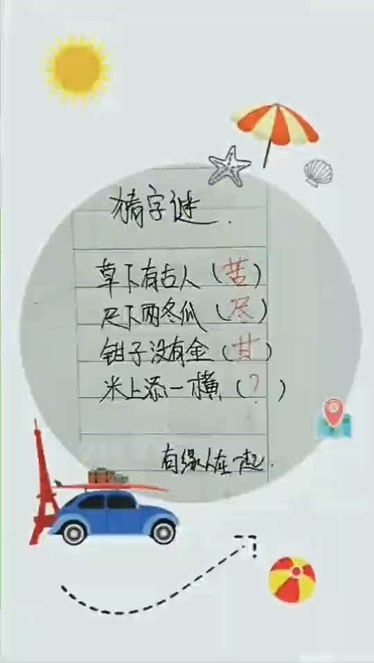 猜字谜.
草下有古人(苦)
尺下两冬瓜(尽)
钳子没有金(甘)
米上添一横(?)
有缘人在一起.